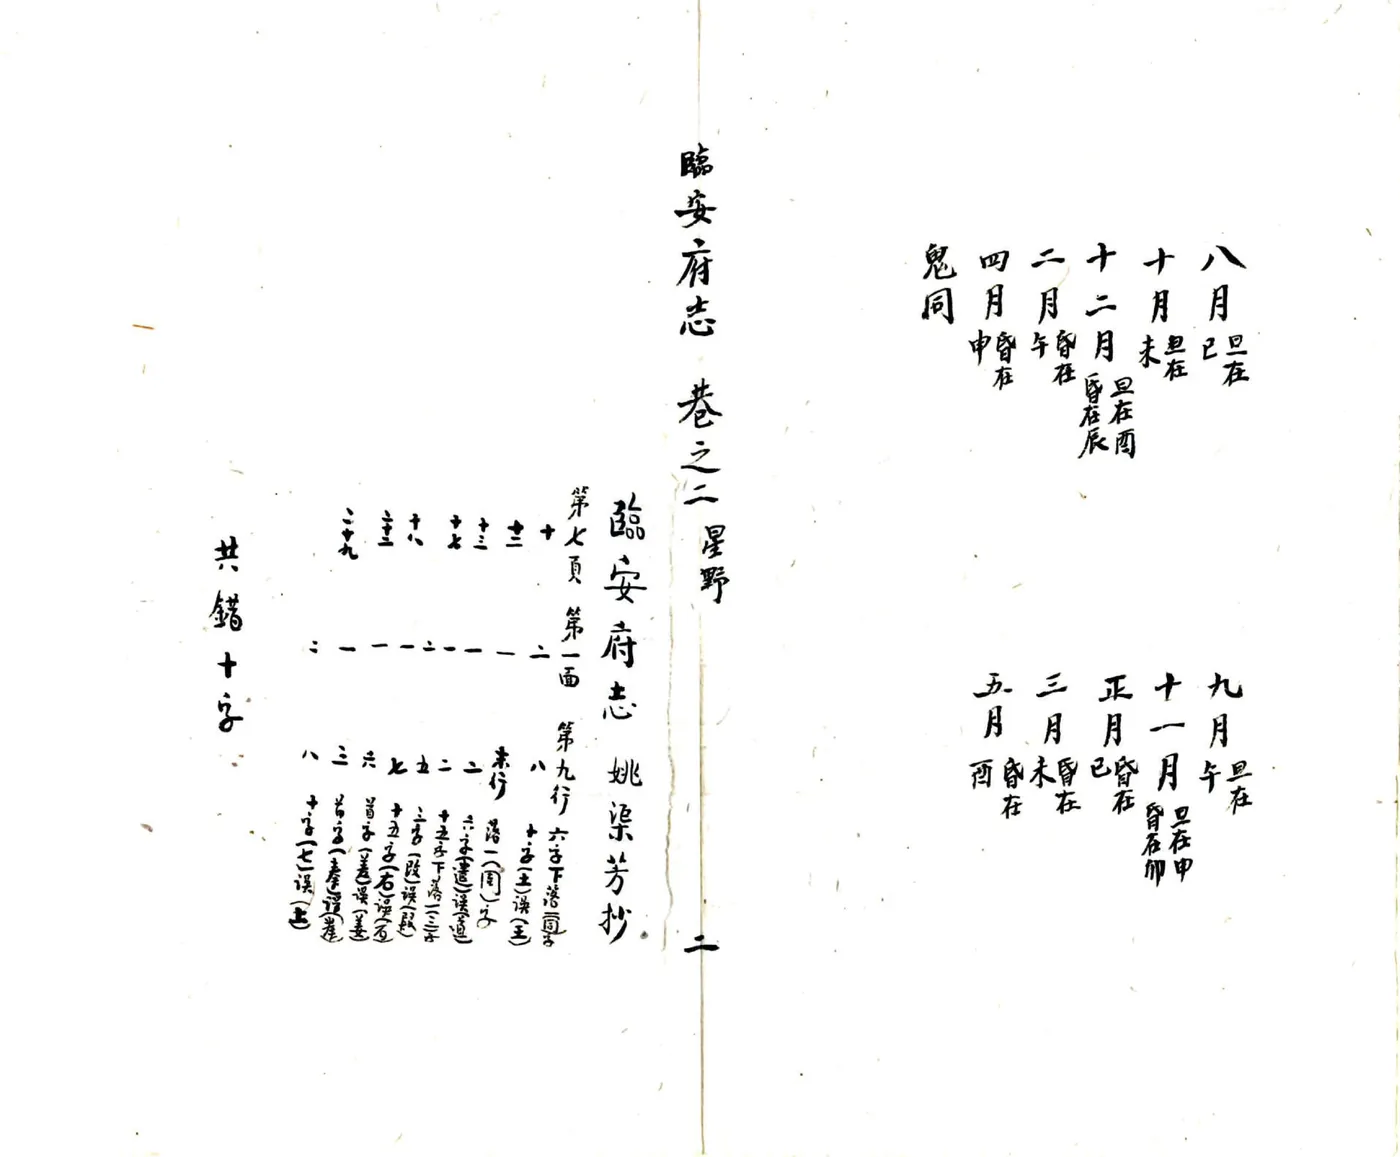 八月旦在巳
九月旦在午
十月旦在未
十一月旦在申昏在卯
十二月旦在酉昏在辰
正月昏在巳
二月昏在午
三月昏在未
四月昏在申
五月昏在酉
鬼同
臨安府志 卷之二 星野 二
臨安府志 姚渠芳抄
第七頁 第一面 第九行 六字下落一同字
十 二 八 十字(土)誤(王)
十二 一 末行 落一(周)字
十三 一 二 六字(遣)誤(道)
十七 一 二 十五字下落一三字
二 五 三字(段)誤
十八 一 七 十五字(右)誤(百)
二十二 一 六 首字(姜)誤(姜)
二十九 一 三 首字(奉)誤
二 八 十字(七)誤(上)
共錯十字